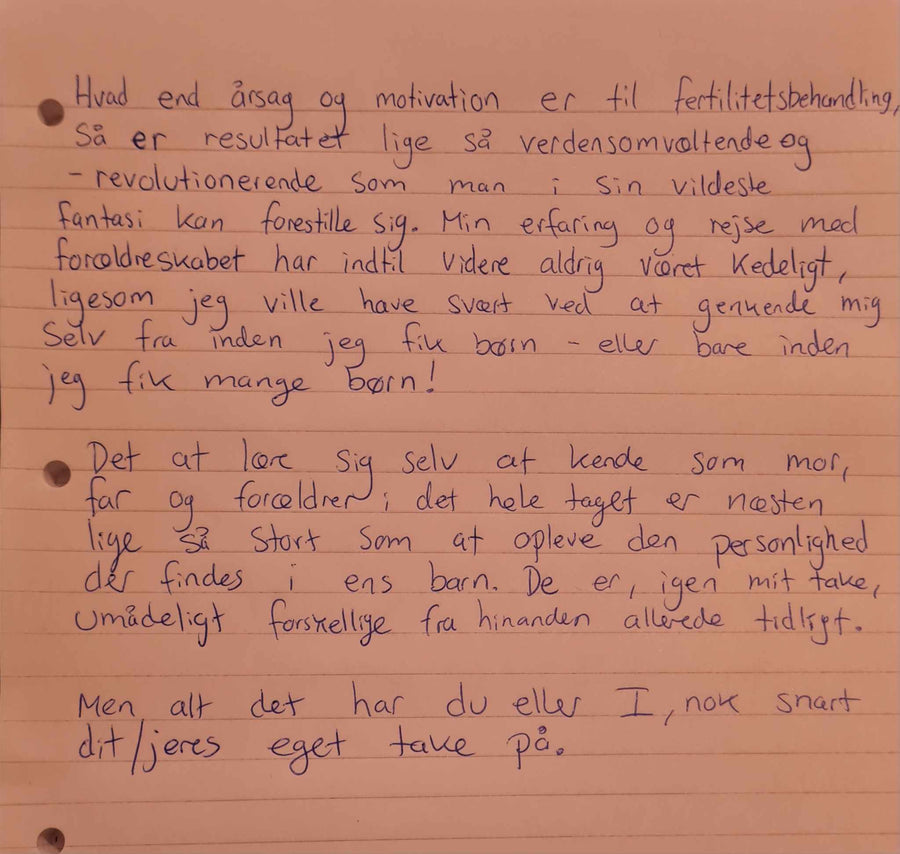 Hvad end årsag og motivation er til fertilitetsbehandling,
Så er resultatet lige så verdensomvæltende og
- revolutionerende som man i sin vildeste
fantasi kan forestille sig. Min erfaring og rejse med
forældreskabet har indtil videre aldrig været kedeligt,
ligesom jeg ville have svært ved at genkende mig
selv fra inden jeg fik børn - eller bare inden
jeg fik mange børn!
Det at lære sig selv at kende som mor,
far og forældrer i det hele taget er næsten
lige så stort som at opleve den personlighed
der findes i ens barn. De er, igen mit take,
umådeligt forskellige fra hinanden allerede tidligt.
Men alt det har du eller I, nok snart
dit/jeres eget take på.